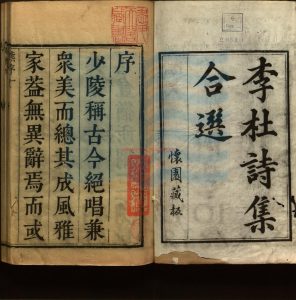 李杜詩集
合選
懷園藏板
序
少陵稱古今絕唱兼
衆美而總其成風雅
家葢無異辭焉而或